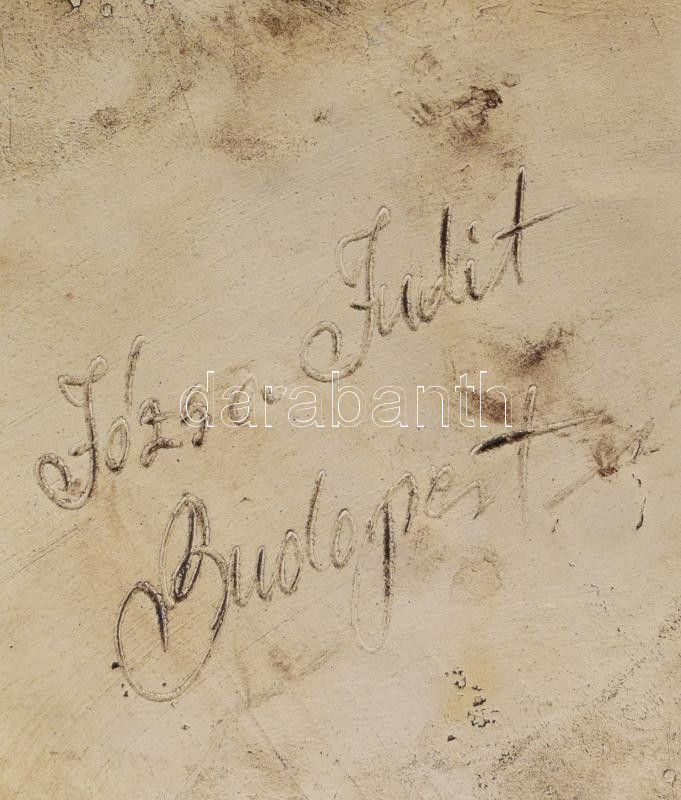 Józsa Judit
darabanth
Budapest